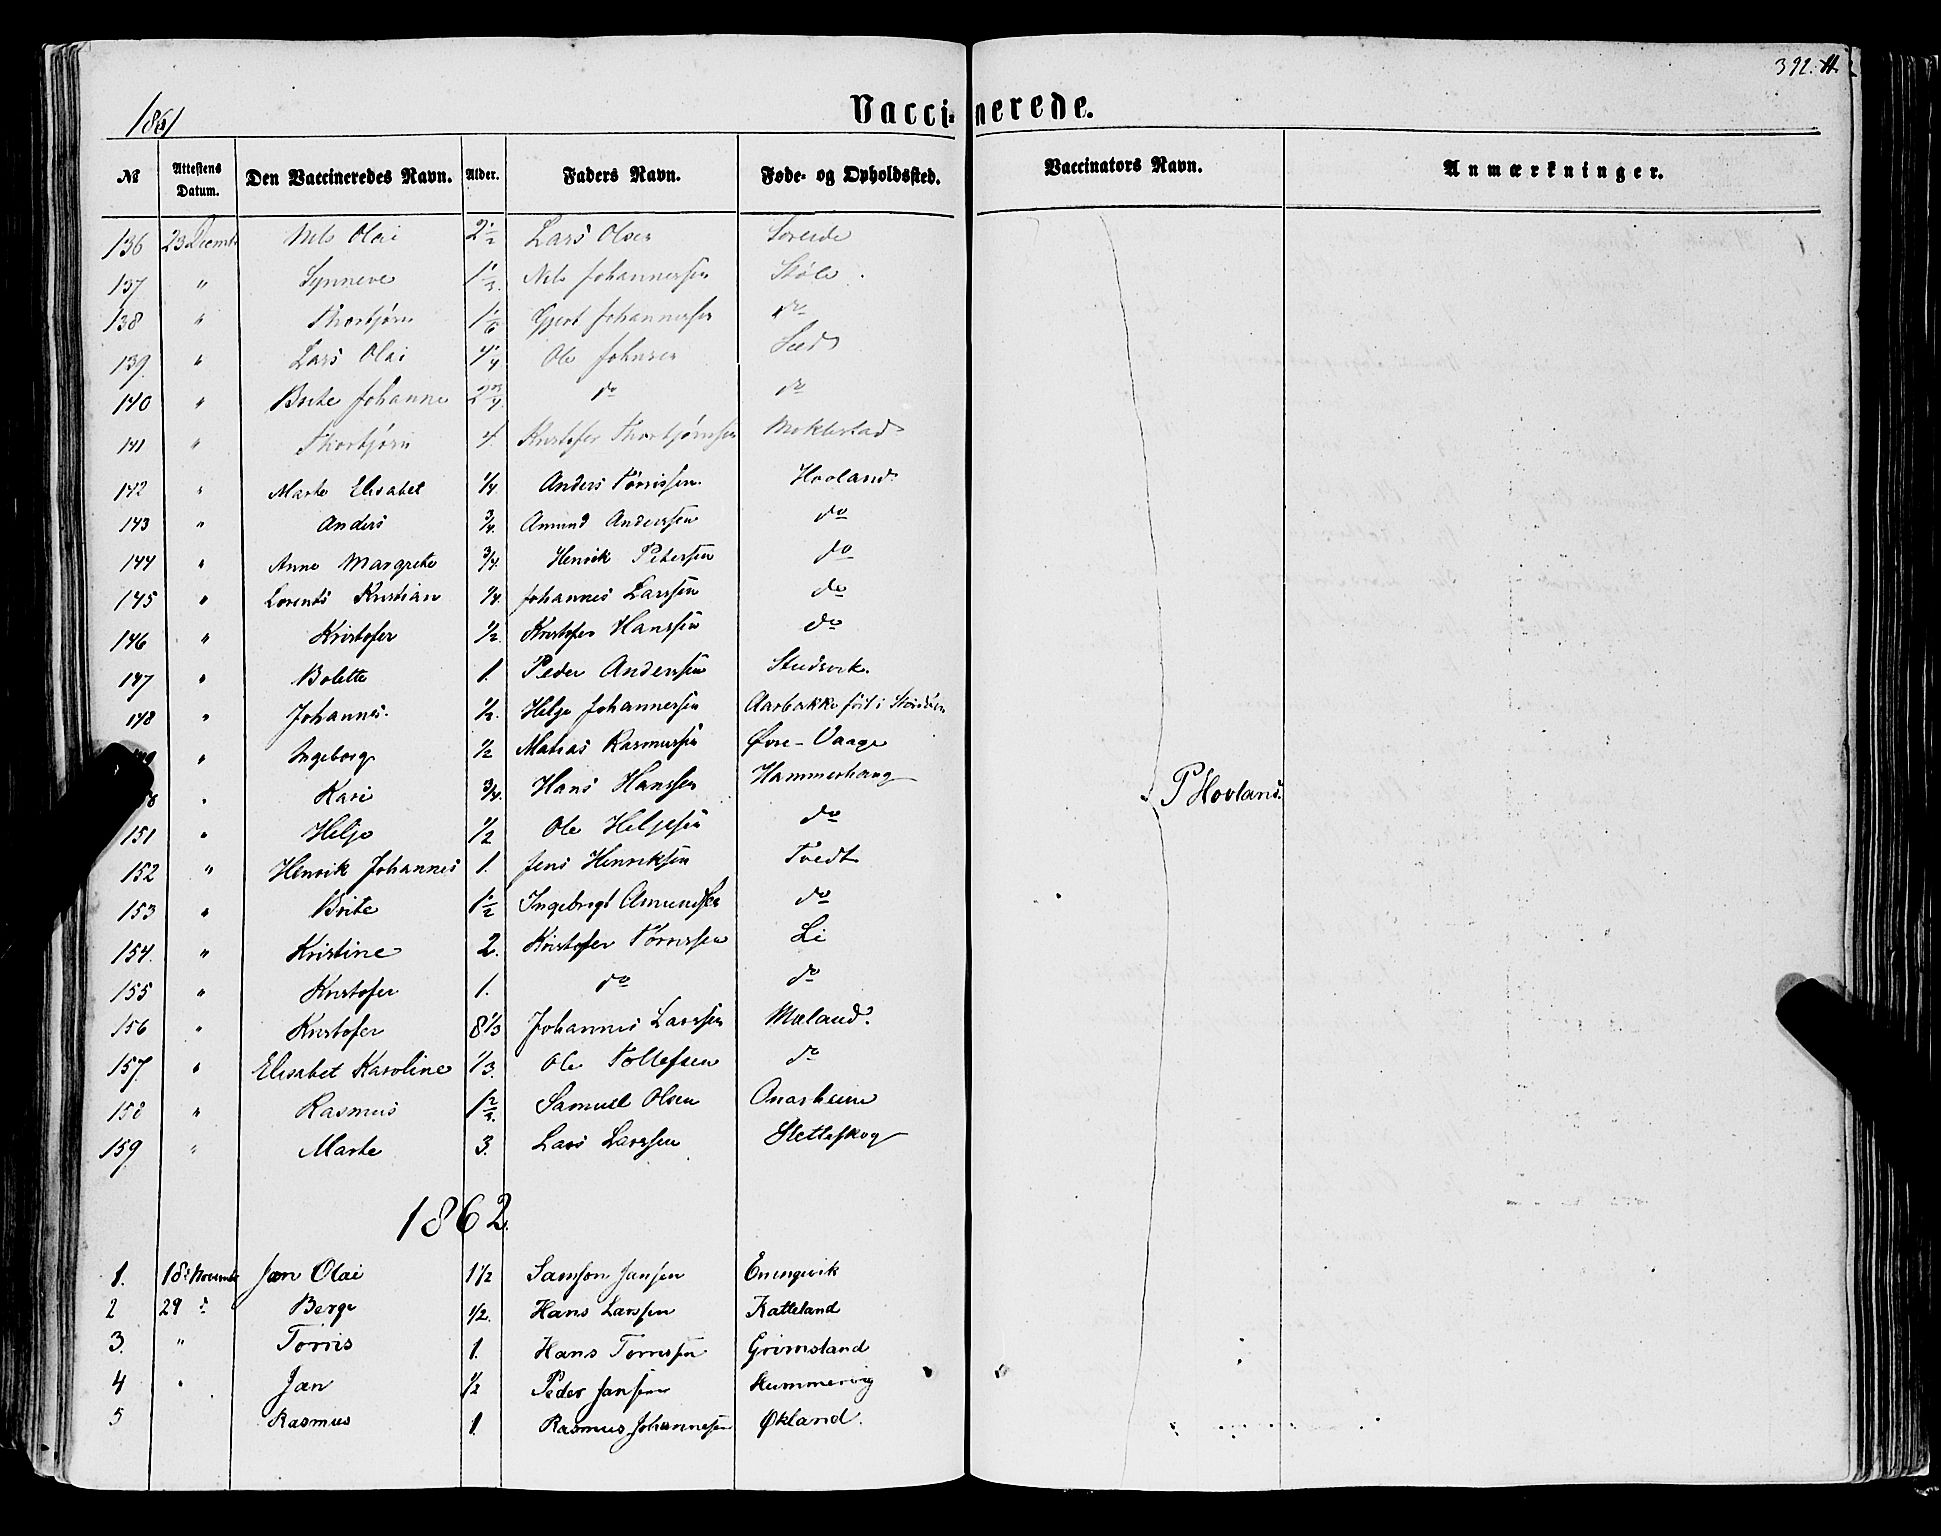 392.
1861
Vaccinerede.
№ Attestens Datum. Den Vaccineredes Navn. Alder. Faders Navn. Føde- og Opholdssted. Vaccinators Navn. Anmærkninger.
136 23 Decemb Nils Olai 2 1/2 Lars Olsen Søreide
137 " Synneve 1 1/3. Nils Johannessen Støle
138 " Thorbjørn 1 1/6 Gjert Johannessen do
139 " Lars Olai Ole Johnsen
140 " Brite Johanne 2 3/4. do do
141 " Thorbjørn 4. Kristofer Thorbjørnsen Moklestad
142 " Marte Elisabet 1/4. Anders Tørrissen. Hovland.
143 " Anders 3/4. Amund Anderssen do
144 " Anne Margrete 3/4. Henrik Peterssen do
145 " Lorents Kristian 1/4. Johannes Larssen do
146 " Kristofer 1/2. Kristofer Hanssen do
147 " Bolette 1. Peder Anderssen Studsvik.
148 " Johannes. 1/2. Helge Johannessen Aarbakke i
" Ingeborg 1/2 Matias Rasmussen Øvre-Vaage
" Kari 3/4. Hans Hanssen Hammerhaug P Hovland.
151 " Helje 1/2 Ole Heljesen do
152 " Henrik Johannes 1. Jens Henriksen Tvedt
153 " Brite 1 1/2 Ingebrigt Amundsen do
154. " Kristine 2. Kristofer Tørrissen Li
155 " Kristofer 1. do do
156 " Kristofer 8 1/3 Johannes Larssen Mæland.
157. " Elisabet Karoline 1/3. Ole Tollefsen do
158 " Rasmus Samuel Olsen
159 " Marte 3. Lars Larssen Sletteskog
1862.
1. 18 Novemb Jan Olai 1 1/2 Samson Jansen Eningevik
2 29 d Berge 1/2. Hans Larssen Katteland
3. " Torris 1. Hans Torrissen Grimsland
4 " Jan 1/2 Peder Jansen Hummervig
5 Rasmus 1. Rasmus Johannesen Økland.